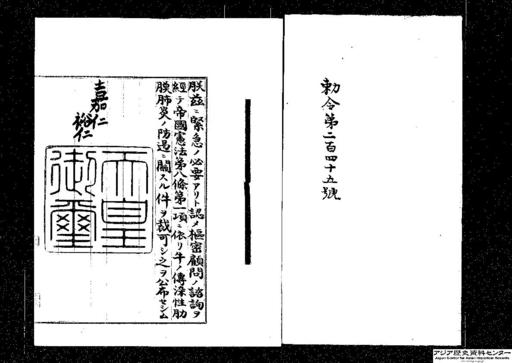 勅令第二百四十五號
朕茲ニ緊急ノ必要アリト認メ樞密顧問ノ諮詢ヲ
經テ帝國憲法第八條第一項ニ依リ牛ノ傳染性肋
膜肺炎ノ防遏ニ關スル件ヲ裁可シ之ヲ公布セシム
嘉仁
裕仁
天皇
御璽
アジア歴史資料センター
Japan Center for Asian Historical Records